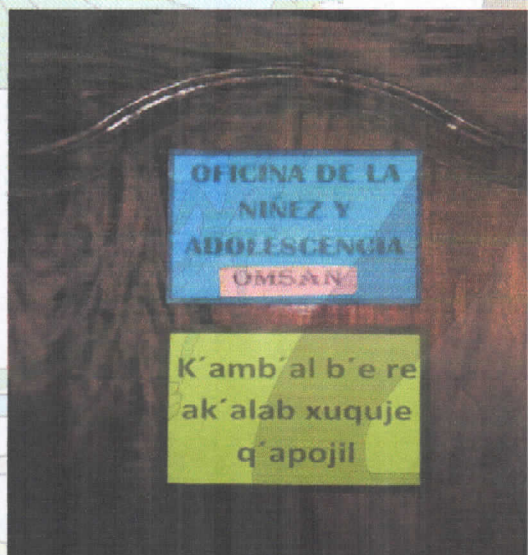 OFICINA DE LA
NIÑEZ Y
ADOLESCENCIA
OMSAN
K´amb´al b´e re
ak´alab xuquje
q´apojil